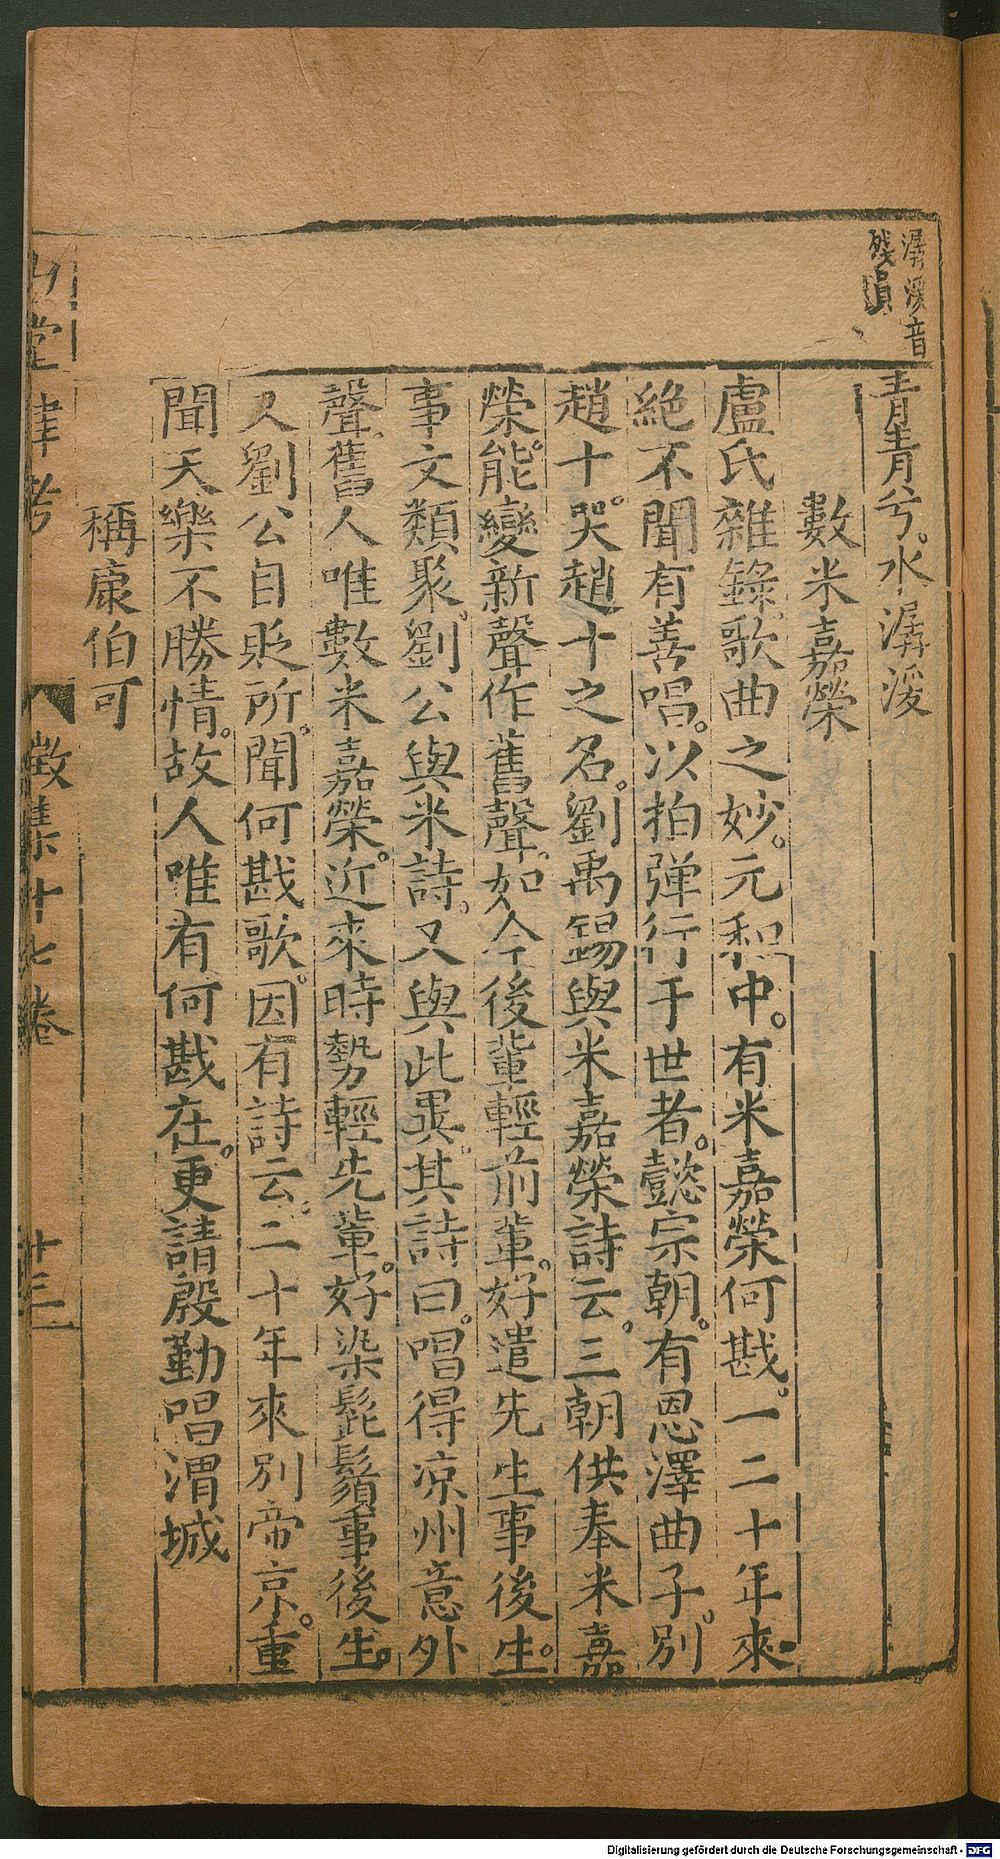 潺湲音
殘員
青青兮。水潺湲
數米嘉榮
盧氏雜錄。歌曲之妙。元和中。有米嘉榮何戡。一二十年來
絶不聞有善唱。以拍弹行于世者。懿宗朝。有恩澤曲子。別
趙十哭。趙十之名。劉禹錫與米嘉榮詩云。三朝供奉米嘉
榮。能變新聲作舊聲。如今後輩輕前輩。好遣先生事後生。
事文類聚。劉公與米詩。又與此異。其詩曰。唱得凉州意外
聲。舊人唯數米嘉榮。近來時勢輕先輩。好染髭鬚事後生。
又劉公自貶所。聞何戡歌。因有詩云。二十年來別帝京。重
聞天樂不勝情。故人唯有何戡在。更請殷勤唱渭城
稱康伯可
山堂肆考
徵集十七卷
十三
Digitalisierung gefördert durch die Deutsche Forschungsgemeinschaft - DFG